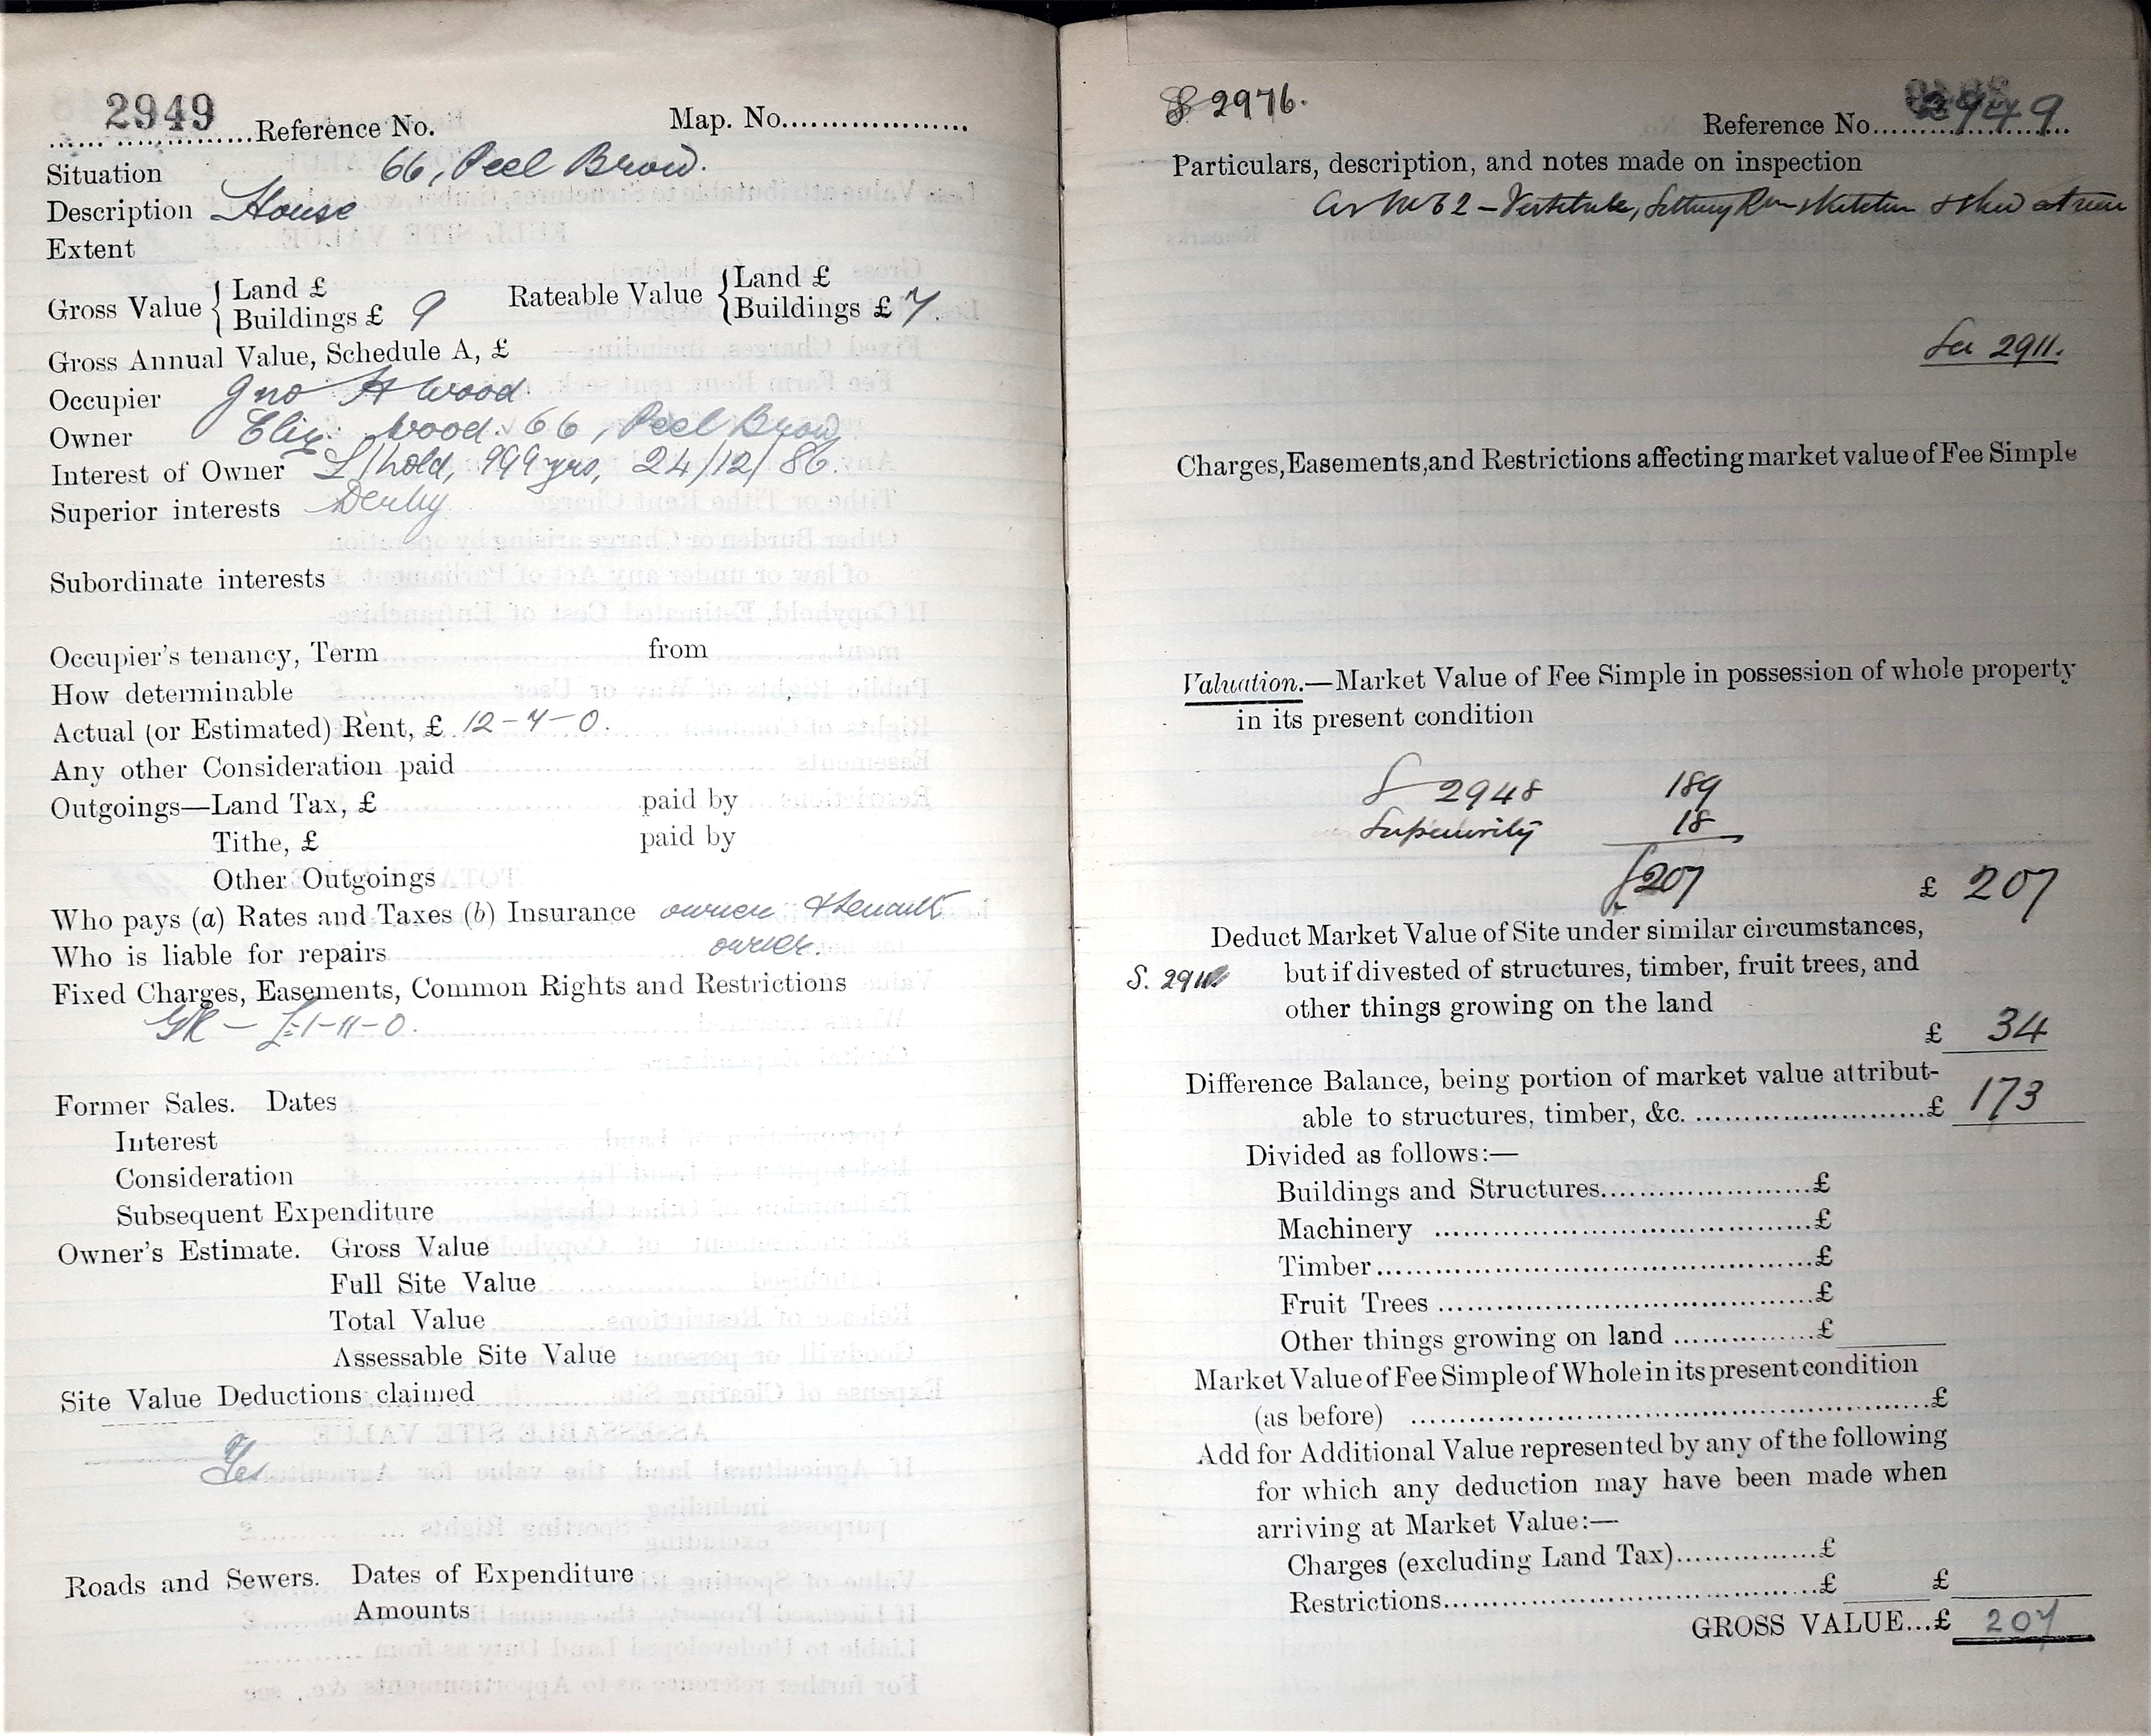 2949 Reference No. Map. No.
Situation 66, Peel Brow.
Description House
Extent
Gross Value { Land £
Buildings £ 9
Rateable Value { Land £
Buildings £ 7.
Gross Annual Value, Schedule A, £
Occupier Jno H Wood.
Owner Eliz: Wood. 66, Peel Brow
Interest of Owner L/hold, 999 yrs, 24/12/86.
Superior interests Derby
Subordinate interests
Occupier's tenancy, Term from
How determinable
Actual (or Estimated) Rent, £ 12-7-0.
Any other Consideration paid
Outgoings—Land Tax, £ paid by
Tithe, £ paid by
Other Outgoings
Who pays (a) Rates and Taxes (b) Insurance owner & tenant
Who is liable for repairs owner.
Fixed Charges, Easements, Common Rights and Restrictions
GR - £1-11-0.
Former Sales. Dates
Interest
Consideration
Subsequent Expenditure
Owner's Estimate. Gross Value
Full Site Value
Total Value
Assessable Site Value
Site Value Deductions claimed
Yes
Roads and Sewers. Dates of Expenditure
Amounts
S 2976.
Reference No. 2949
Particulars, description, and notes made on inspection
As No 62 - Vestibule, Sitting Rm & shed at rear
See 2911.
Charges, Easements, and Restrictions affecting market value of Fee Simple
Valuation.—Market Value of Fee Simple in possession of whole property
in its present condition
S 2948 189
Superiority 18
£207 £ 207
Deduct Market Value of Site under similar circumstances,
S. 2911 but if divested of structures, timber, fruit trees, and
other things growing on the land
£ 34
Difference Balance, being portion of market value attribut-
able to structures, timber, &c. £ 173
Divided as follows:—
Buildings and Structures £
Machinery £
Timber £
Fruit Trees £
Other things growing on land £
Market Value of Fee Simple of Whole in its present condition
(as before) £
Add for Additional Value represented by any of the following
for which any deduction may have been made when
arriving at Market Value:—
Charges (excluding Land Tax) £
Restrictions £ £
GROSS VALUE...£ 207